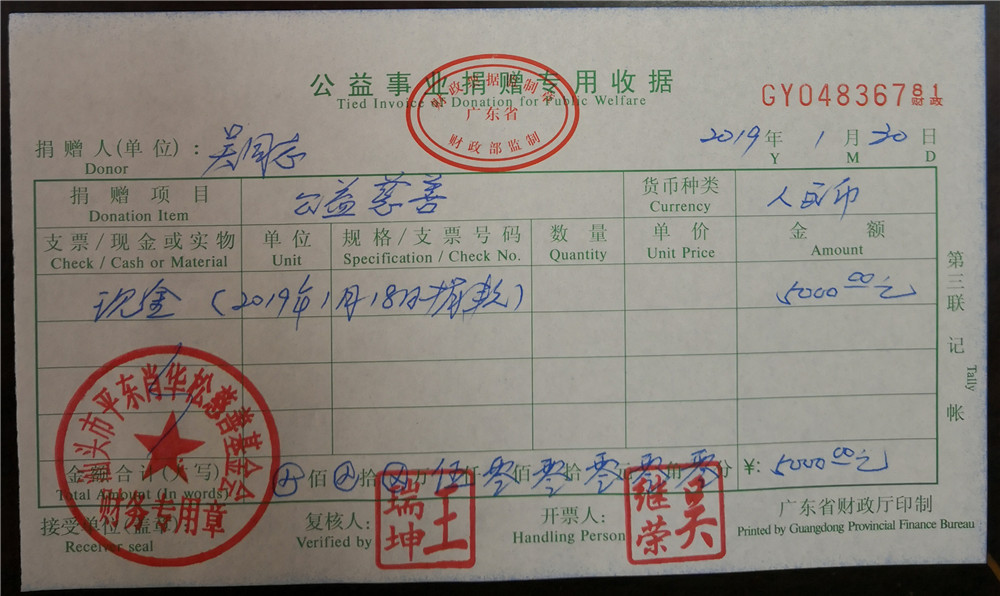 公益事业捐赠专用收据
Tied Invoice Donation for Public Welfare
财政部监制
广东省
GY04836781
财政
捐赠人(单位)：吴同志
Donor
2019年1月30日
Y M D
捐赠项目 公益慈善 货币种类 人民币
Donation Item Currency
支票/现金或实物 单位 规格/支票号码 数量 单价 金额
Check / Cash or Material Unit Specification / Check No. Quantity Unit Price Amount
现金（2019年1月18日捐款） 5000.00元
第三联 记帐
Tally
金额合计(大写) 佰 拾 万 伍仟 零佰 零拾 零元 零角 零分 ¥: 5000.00元
Total Amount (In words)
接受单位(盖章) 复核人: 开票人: 广东省财政厅印制
Receiver seal Verified by Handling Person Printed by Guangdong Provincial Finance Bureau
汕头市平东肖华松慈善基金会
财务专用章
王瑞坤
吴继荣